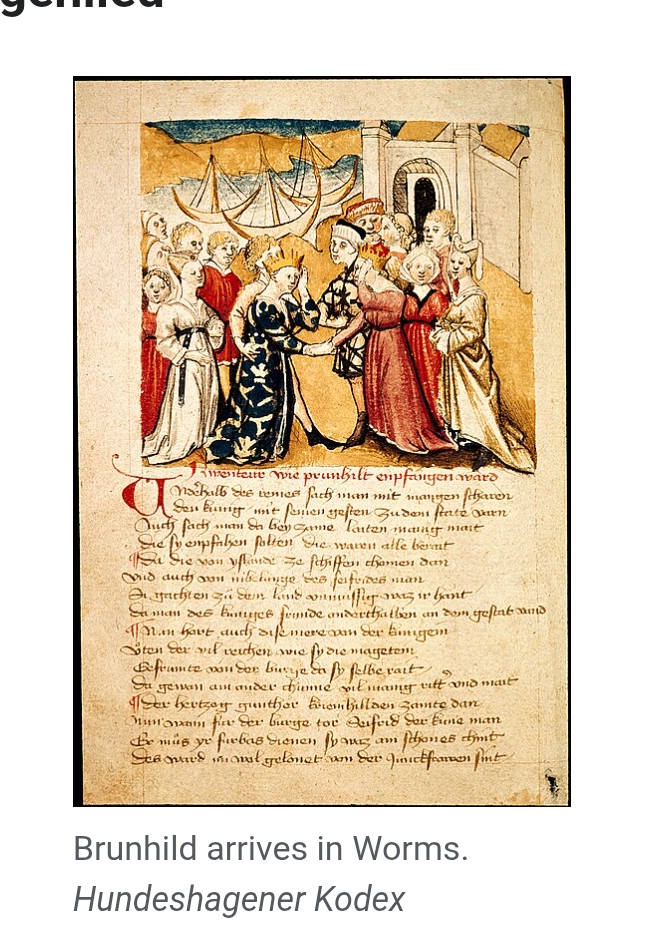 genlied
Awenteur wie prunhilt enpfangen ward
des reines sach man mit mangen scharen
den kunig mit seinen gesten zu dem state varn
Auch sach man da bey zame laiten manig mait
die sy enpfahen solten die waren alle berait
Da die von yslande ze schiffen chomen dan
vnd auch von nibelunge des seifrides man
Si gachten zu dem land waz ir hant
da man des kuniges frunde anderthalben an dem gestat vand
Nan hort auch dise mere von der kunigein
vten der vil reichen wie sy die magetein
Gefrumte von der burge da sy selbe rait
Da gewan ain ander chunne vil manig ritter vnd mait
der hertzog gunther dan
fur der burge tor Seifrid der kune man
Er mus yr furbas dienen sy waz ain schones chint
Des ward im wol gelonet von der sint
Brunhild arrives in Worms.
Hundeshagener Kodex